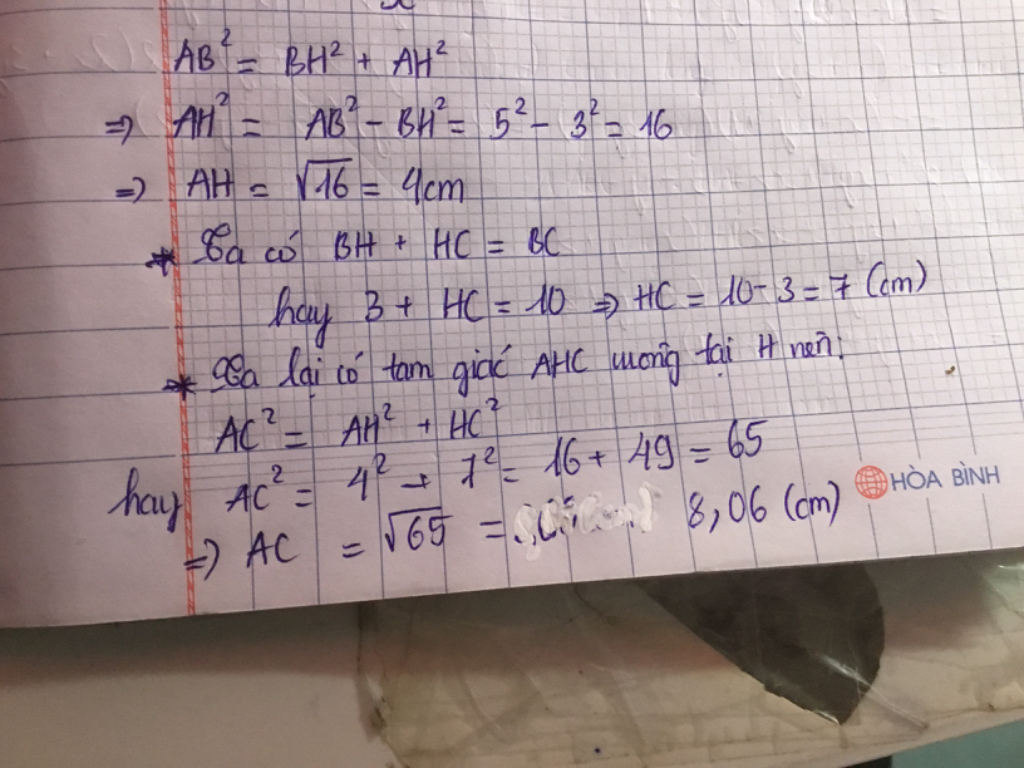 AB² = BH² + AH²
⇒ AH² = AB² - BH² = 5² - 3² = 16
⇒ AH = √16 = 4cm
* Ta có BH + HC = BC
hay 3 + HC = 10 ⇒ HC = 10 - 3 = 7 (cm)
* Ta lại có tam giác AHC vuông tại H nên:
AC² = AH² + HC²
hay AC² = 4² + 7² = 16 + 49 = 65
⇒ AC = √65 = 8,06 (cm)
HÒA BÌNH